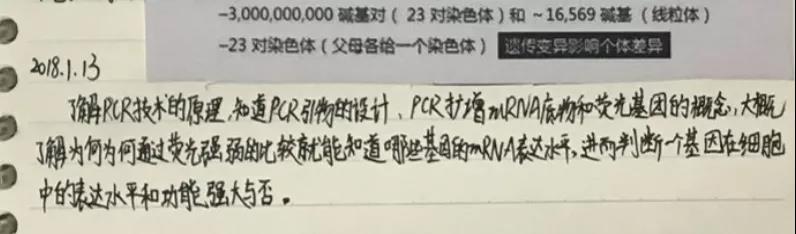 –3,000,000,000 碱基对（ 23 对染色体）和 ~16,569 碱基 （ 线粒体）
–23 对染色体（父母各给一个染色体） 遗传变异影响个体差异
2018.1.13
了解PCR技术的原理,知道PCR引物的设计、PCR扩增mRNA底物和荧光基因的概念,大概
了解为何为何通过荧光强弱的比较就能知道哪些基因的mRNA表达水平,进而判断一个基因在细胞
中的表达水平和功能强大与否。